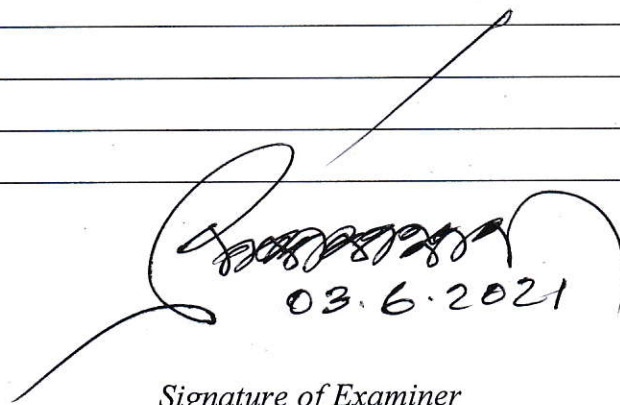 03.6.2021
Signature of Examiner